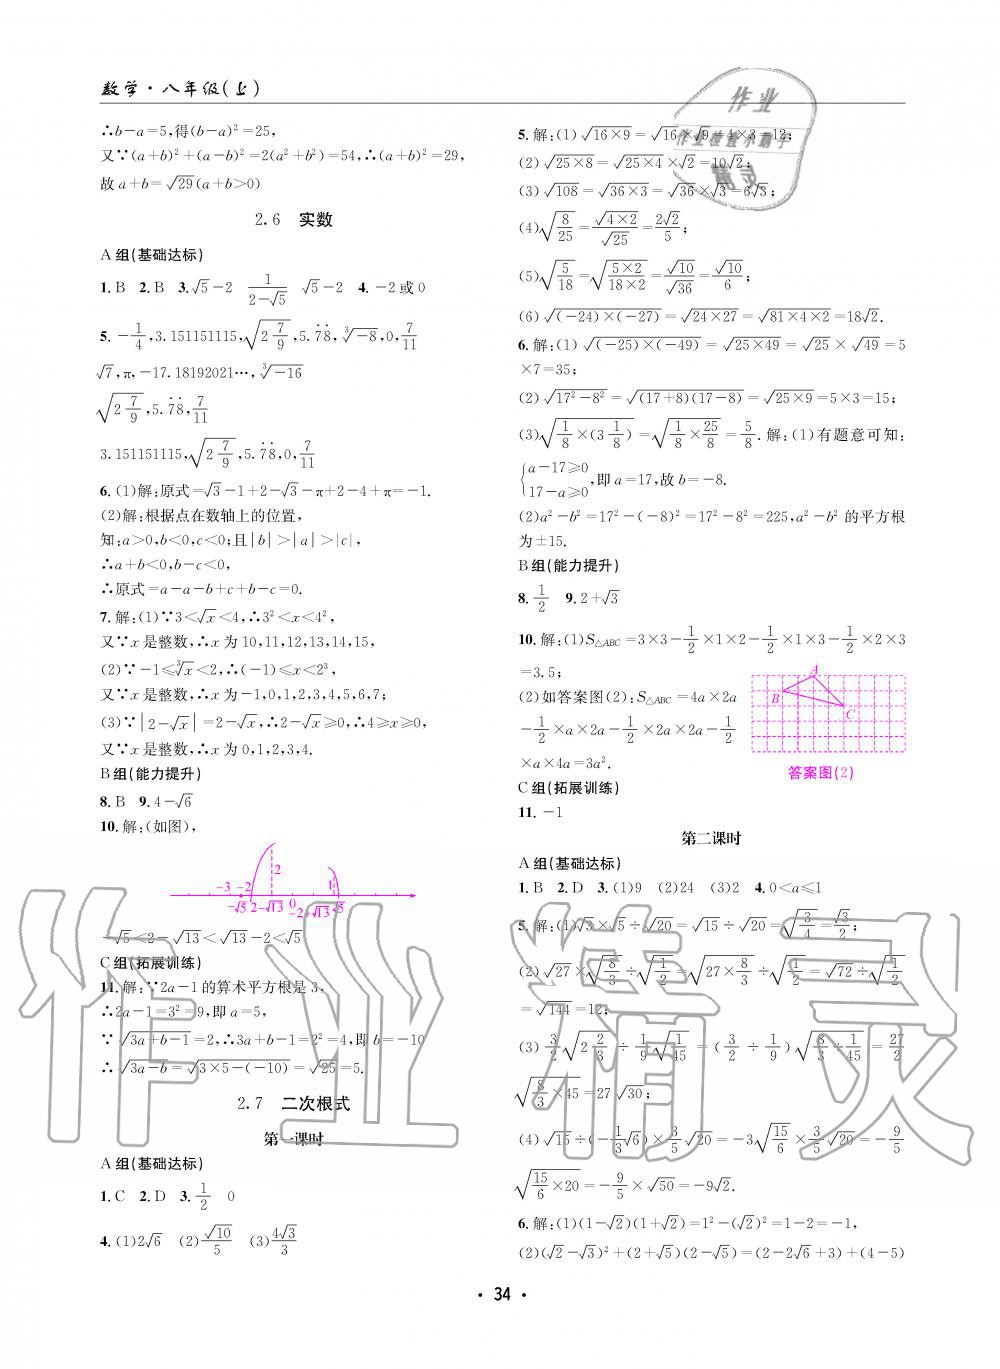 数学·八年级(上)
∴b-a=5,得(b-a)²=25,
又∵(a+b)²+(a-b)²=2(a²+b²)=54,∴(a+b)²=29,
故a+b=√29(a+b>0)
2.6 实数
A组(基础达标)
1.B 2.B 3.√5-2 1/(2-√5) √5-2 4.-2或0
5.-1/4,3.151151115,√(2 7/9),5.7̇8̇,∛-8,0,7/11
√7,π,-17.18192021…,∛-16
√(2 7/9),5.7̇8̇,7/11
3.151151115,√(2 7/9),5.7̇8̇,0,7/11
6.(1)解:原式=√3-1+2-√3-π+2-4+π=-1.
(2)解:根据点在数轴上的位置,
知:a>0,b<0,c<0;且|b|>|a|>|c|,
∴a+b<0,b-c<0,
∴原式=a-a-b+c+b-c=0.
7.解:(1)∵3<√x<4,∴3²<x<4²,
又∵x是整数,∴x为10,11,12,13,14,15,
(2)∵-1≤∛x<2,∴(-1)≤x<2³,
又∵x是整数,∴x为-1,0,1,2,3,4,5,6,7;
(3)∵|2-√x|=2-√x,∴2-√x≥0,∴4≥x≥0,
又∵x是整数,∴x为0,1,2,3,4.
B组(能力提升)
8.B 9.4-√6
10.解:(如图),
2
-3 -2 1
-√5 2-√13 0 -2+√13 √5
-√5<2-√13<√13-2<√5
C组(拓展训练)
11.解:∵2a-1的算术平方根是3,
∴2a-1=3²=9,即a=5,
∵√(3a+b-1)=2,∴3a+b-1=2²=4,即b=-10
∴√(3a-b)=√(3×5-(-10))=√25=5.
2.7 二次根式
第一课时
A组(基础达标)
1.C 2.D 3.1/2 0
4.(1)2√6 (2)√10/5 (3)4√3/3
5.解:(1)√(16×9)=√16×√9=4×3=12;
(2)√(25×8)=√(25×4)×√2=10√2;
(3)√108=√(36×3)=√36×√3=6√3;
(4)√(8/25)=√(4×2)/√25=2√2/5;
(5)√(5/18)=√((5×2)/(18×2))=√10/√36=√10/6;
(6)√((-24)×(-27))=√(24×27)=√(81×4×2)=18√2.
6.解:(1)√((-25)×(-49))=√(25×49)=√25×√49=5
×7=35;
(2)√(17²-8²)=√((17+8)(17-8))=√(25×9)=5×3=15;
(3)√(1/8×(3 1/8))=√(1/8×25/8)=5/8.解:(1)有题意可知:
{a-17≥0
17-a≥0,即a=17,故b=-8.
(2)a²-b²=17²-(-8)²=17²-8²=225,a²-b²的平方根
为±15.
B组(能力提升)
8.1/2 9.2+√3
10.解:(1)S△ABC=3×3-1/2×1×2-1/2×1×3-1/2×2×3
=3.5;
(2)如答案图(2):S△ABC=4a×2a
-1/2×a×2a-1/2×2a×2a-1/2
×a×4a=3a².
A
B
C
答案图(2)
C组(拓展训练)
11.-1
第二课时
A组(基础达标)
1.B 2.D 3.(1)9 (2)24 (3)2 4.0<a≤1
5.解:(1)√3×√5÷√20=√15÷√20=√(3/4)=√3/2;
(2)√27×√(8/3)÷√(1/2)=√(27×8/3)÷√(1/2)=√72÷√(1/2)
=√144=12;
(3)3/2√(2 2/3)÷1/9√(1/45)=(3/2÷1/9)√(8/3÷1/45)=27/2
√(8/3×45)=27√30;
(4)√15÷(-1/3√6)×3/5√20=-3√(15/6)×3/5√20=-9/5
√(15/6×20)=-9/5×√50=-9√2.
6.解:(1)(1-√2)(1+√2)=1²-(√2)²=1-2=-1,
(2)(√2-√3)²+(2+√5)(2-√5)=(2-2√6+3)+(4-5)
·34·
作业
作业检查小霸手
精灵
作业精灵